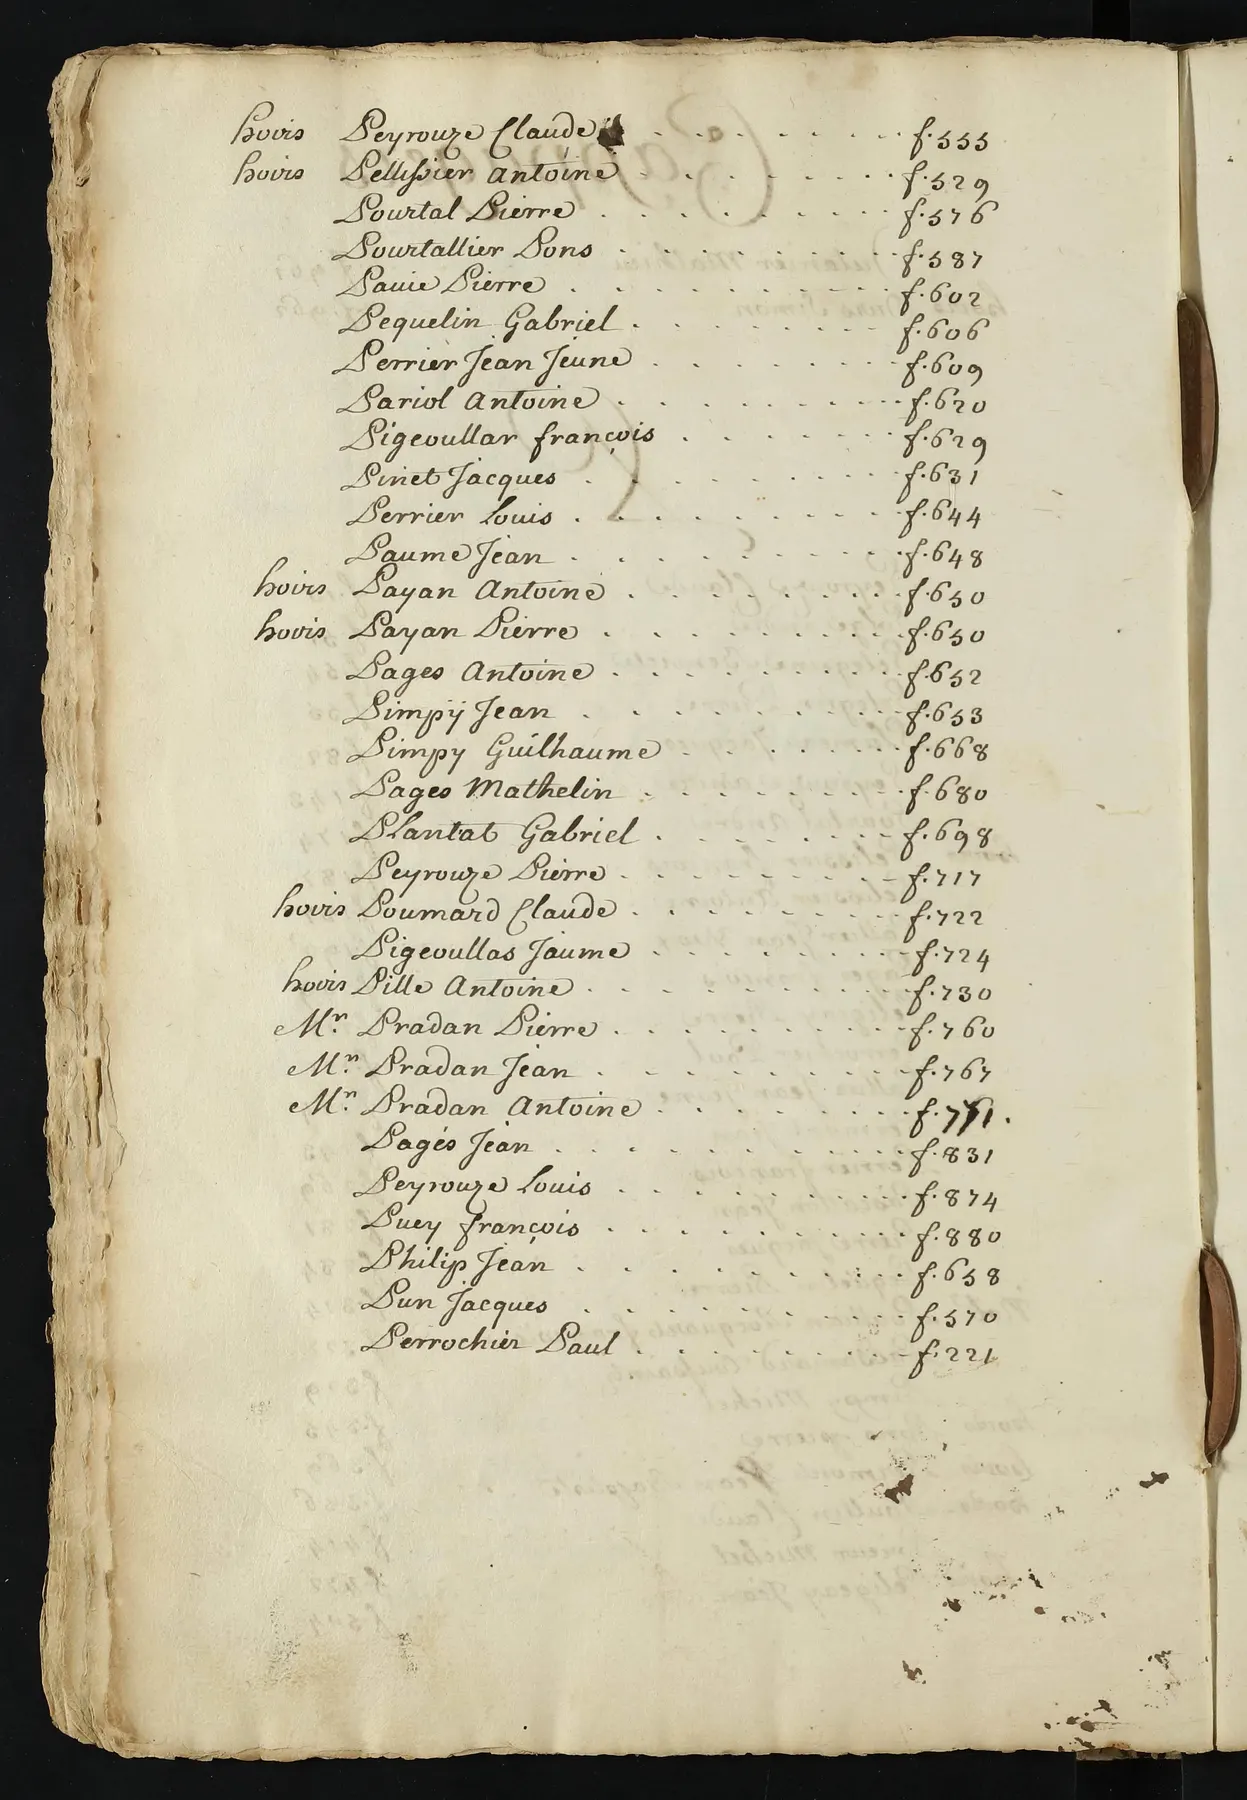 hoirs Peyrouze Claude . . . . . . . f. 555
hoirs Pellissier Antoine . . . . . . . f. 529
Pourtal Pierre . . . . . . . . f. 576
Pourtallier Pons . . . . . . . f. 587
Pavie Pierre . . . . . . . . f. 602
Pequelin Gabriel . . . . . . . f. 606
Perrier Jean Jeune . . . . . . . f. 609
Pariol Antoine . . . . . . . . f. 620
Pigeoullar françois . . . . . . f. 629
Pinet Jacques . . . . . . . . f. 631
Perrier Louis . . . . . . . . f. 644
Paume Jean . . . . . . . . f. 648
hoirs Payan Antoine . . . . . . . f. 650
hoirs Payan Pierre . . . . . . . . f. 650
Pages Antoine . . . . . . . . f. 652
Pimpÿ Jean . . . . . . . . f. 653
Pimpy Guilhaume . . . . . . f. 668
Pages Mathelin . . . . . . . f. 680
Plantat Gabriel . . . . . . . f. 698
Peyrouze Pierre . . . . . . . f. 717
hoirs Poumard Claude . . . . . . . f. 722
Pigeoullas Jaume . . . . . . . f. 724
hoirs Pille Antoine . . . . . . . . f. 730
Mr. Pradan Pierre . . . . . . . . f. 760
Mr. Pradan Jean . . . . . . . . f. 767
Mr. Pradan Antoine . . . . . . . f.
Pagés Jean . . . . . . . . . f. 831
Peyrouze Louis . . . . . . . . f. 874
Puey françois . . . . . . . . f. 880
Philip Jean . . . . . . . . f. 658
Pun Jacques . . . . . . . . f. 570
Perrochier Paul . . . . . . . f. 221